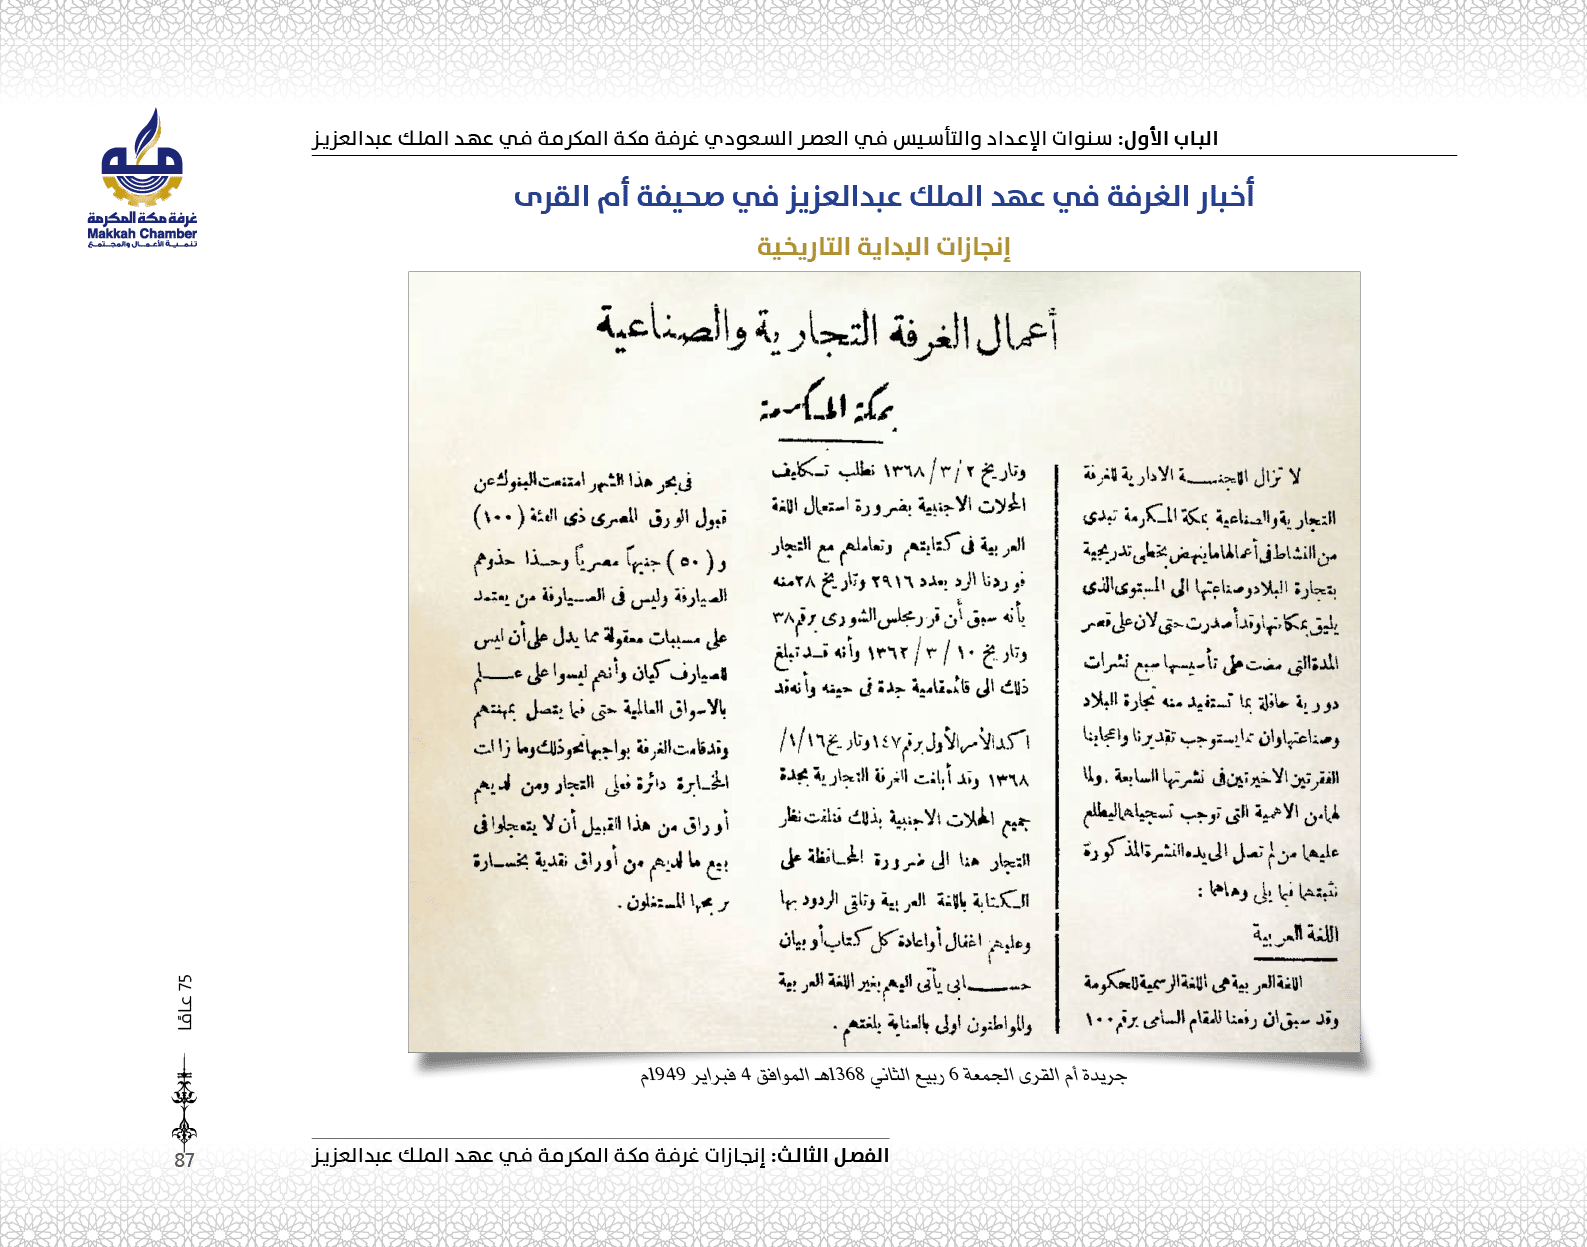 الباب الأول: سنوات الإعداد والتأسيس في العصر السعودي غرفة مكة المكرمة في عهد الملك عبدالعزيز
غرفة مكة المكرمة
Makkah Chamber
تنمية الأعمال والمجتمع
أخبار الغرفة في عهد الملك عبدالعزيز في صحيفة أم القرى
إنجازات البداية التاريخية
أعمال الغرفة التجارية والصناعية
بمكة المكرمة
لا تزال اللجنة الادارية للغرفة
التجارية والصناعية بمكة المكرمة تبدى
من النشاط فى أعمالها ما ينهض بخطى تدريجية
بتجارة البلاد وصناعتها الى المستوى الذى
يليق بمكانتها وقد أصدرت حتى لان على قصر
المدة التى مضت على تأسيسها سبع نشرات
دورية حافلة بما تستفيد منه تجارة البلاد
وصناعتها وان مما يستوجب تقديرنا واعجابنا
الفقرتين الاخيرتين فى نشرتها السابعة . ولما
لهما من الاهمية التى توجب تسجيلهما ليطلع
عليهما من لم تصل الى يده النشرة المذكورة
نثبتهما فيما يلى وهاهما :
اللغة العربية
اللغة العربية هى اللغة الرسمية للحكومة
وقد سبق ان رفعنا للمقام السامى برقم ١٠٠
وتاريخ ٢ / ٣ / ١٣٦٨ نطلب تكليف
المحلات الاجنبية بضرورة استعمال اللغة
العربية فى كتابتهم وتعاملهم مع التجار
فوردنا الرد بعدد ٢٩١٦ وتاريخ ٢٨ منه
بأنه سبق أن قرر مجلس الشورى برقم ٣٨
وتاريخ ١٠ / ٣ / ١٣٦٢ وأنه قد تبلغ
ذلك الى قائمقامية جدة فى حينه وأنه قد
اكد الأمر الأول برقم ١٤٧ وتاريخ ١٦/١/
١٣٦٨ وقد أبلغت الغرفة التجارية بجدة
جميع المحلات الاجنبية بذلك فنلفت نظر
التجار هنا الى ضرورة المحافظة على
الكتابة باللغة العربية وتلقى الردود بها
وعليهم اغفال أو اعادة كل كتاب أو بيان
حسابى يأتى اليهم بغير اللغة العربية
والمواطنون اولى بالعناية بلغتهم .
فى بحر هذا الشهر امتنعت البنوك عن
قبول الورق المصرى ذى الفئة (١٠٠)
و (٥٠) جنيهاً مصرياً وحذا حذوهم
الصيارفة وليس فى الصيارفة من يعتمد
على مسببات معقولة مما يدل على أن ليس
للصيارف كيان وأنهم ليسوا على علم
بالاسواق العالمية حتى فيما يتصل بمهنتهم
وقد قامت الغرفة بواجبها نحو ذلك وما زالت
المخابرة دائرة فعلى التجار ومن لديهم
أوراق من هذا القبيل أن لا يتعجلوا فى
بيع ما لديهم من أوراق نقدية بخسارة
يربحها المستغلون .
جريدة أم القرى الجمعة 6 ربيع الثاني 1368هـ الموافق 4 فبراير 1949م
75 عامًا
87
الفصل الثالث: إنجازات غرفة مكة المكرمة في عهد الملك عبدالعزيز